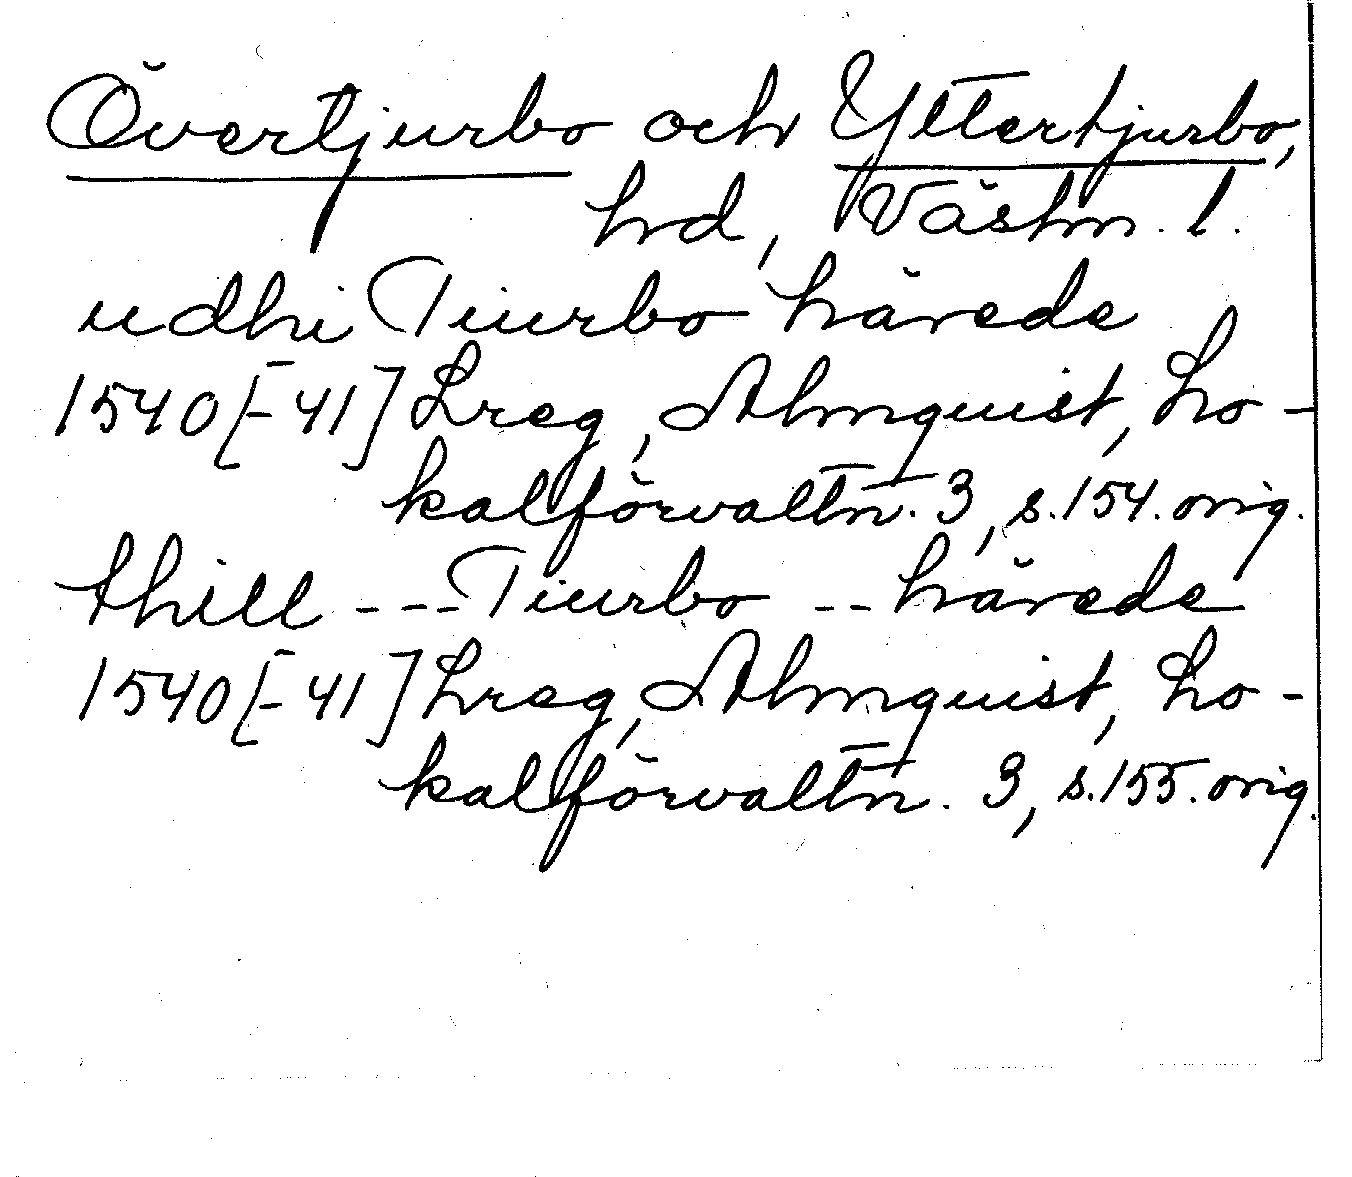 Övertjurbo och Yttertjurbo,
hd, Västm. l.
udhi Tiurbo härede
1540[-41] Lreg, Almquist, Lo-
kalförvaltn. 3, s. 154. orig.
thill --- Tiurbo -- härede
1540[-41] Lreg, Almquist, Lo-
kalförvaltn. 3, s. 155. orig.